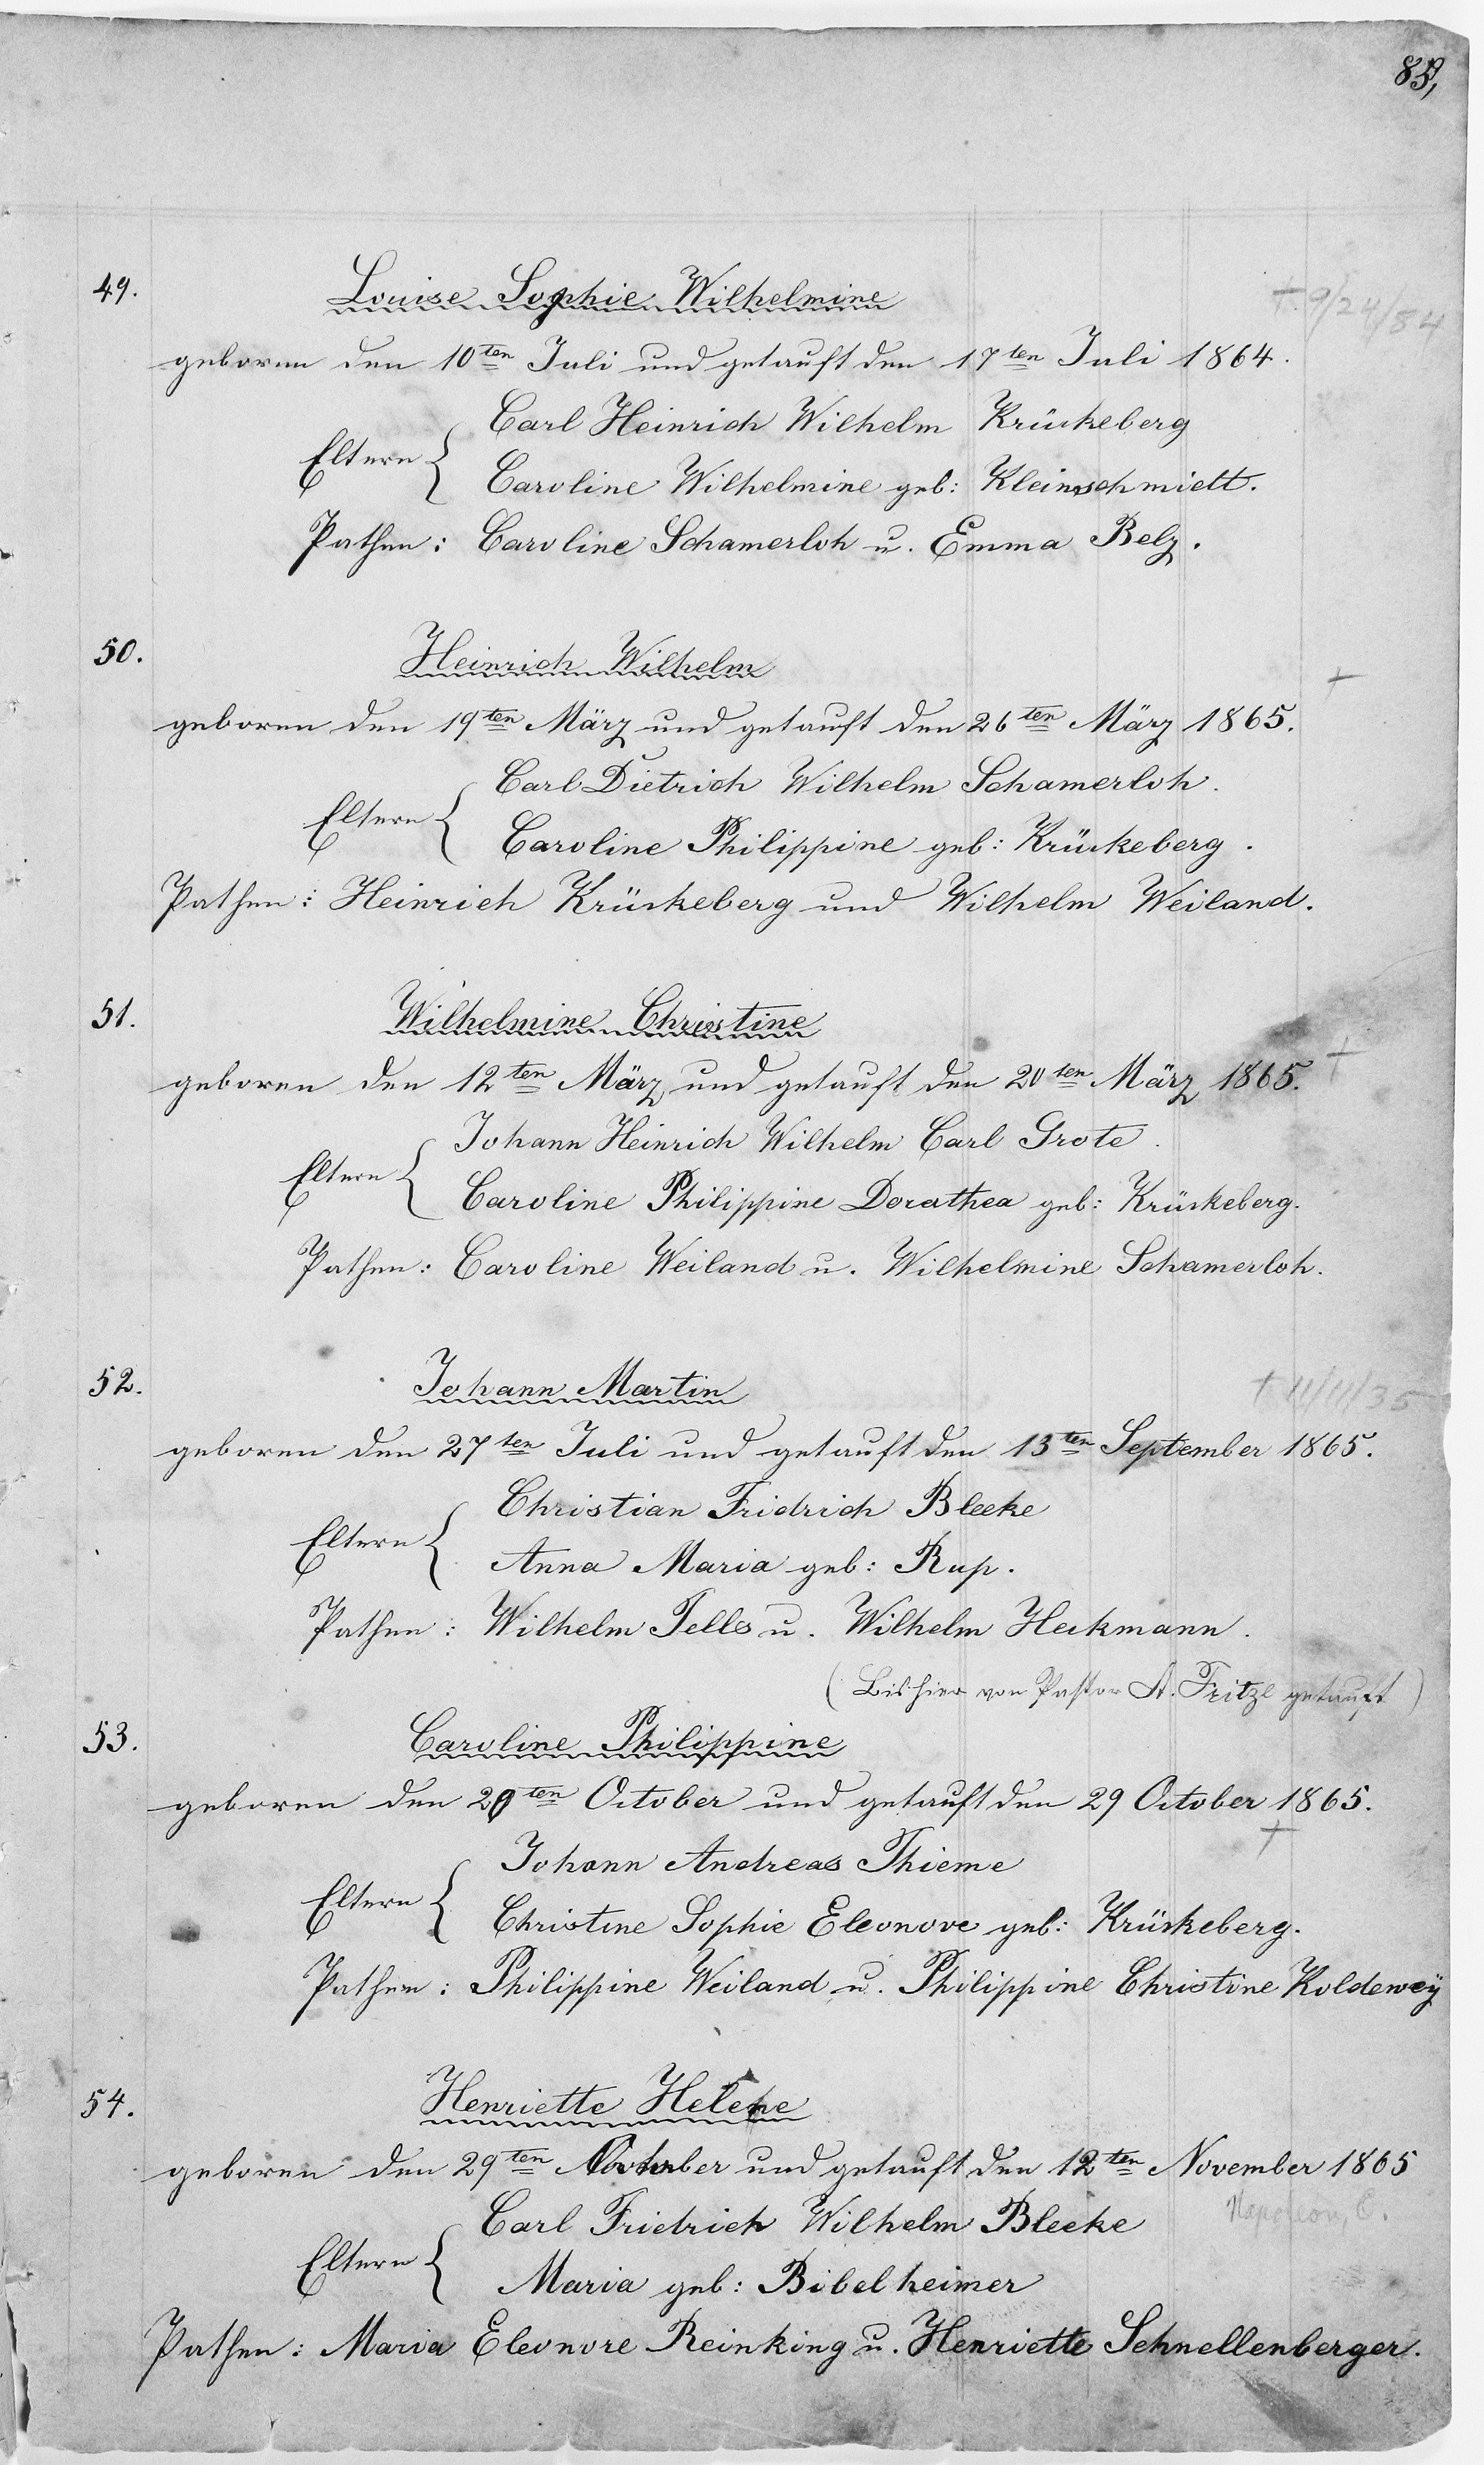 49.
Louise Sophie Wilhelmine
† 9/24/54
geboren den 10ten Juli und getauft den 17ten Juli 1864.
Carl Heinrich Wilhelm Krückeberg
Eltern {
Caroline Wilhelmine geb: Kleinschmidt.
Pathen: Caroline Schamerloh u. Emma Belz.
50.
Heinrich Wilhelm
†
geboren den 19ten März und getauft den 26ten März 1865.
Carl Dietrich Wilhelm Schamerloh.
Eltern {
Caroline Philippine geb: Krückeberg.
Pathen: Heinrich Krückeberg und Wilhelm Weiland.
51.
Wilhelmine Christine
†
geboren den 12ten März und getauft den 20ten März 1865.
Johann Heinrich Wilhelm Carl Grote.
Eltern {
Caroline Philippine Dorathea geb: Krückeberg.
Pathen: Caroline Weiland u. Wilhelmine Schamerloh.
52.
Johann Martin
† 11/11/35
geboren den 27ten Juli und getauft den 13ten September 1865.
Christian Fridrich Bleeke
Eltern {
Anna Maria geb: Rup.
Pathen: Wilhelm Telle u. Wilhelm Heckmann.
(Bis hier von Pastor A. Fritze getauft)
53.
Caroline Philippine
geboren den 20ten October und getauft den 29 October 1865.
†
Johann Andreas Thieme
Eltern {
Christine Sophie Eleonore geb: Krückeberg.
Pathen: Philippine Weiland u. Philippine Christine Koldewey
54.
Henriette Helene
geboren den 29ten October und getauft den 12ten November 1865
Napoleon, O.
Carl Friedrich Wilhelm Bleeke
Eltern {
Maria geb: Bibelheimer
Pathen: Maria Eleonore Reinking u. Henriette Schnellenberger.